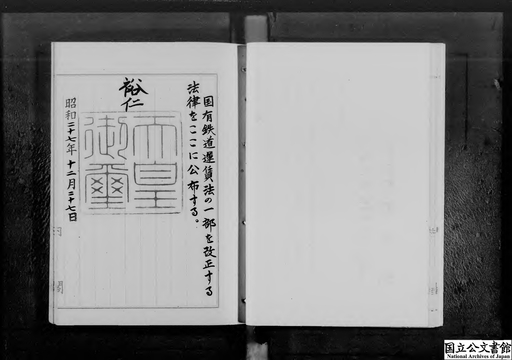 国有鉄道運賃法の一部を改正する
法律をここに公布する。
裕仁
天皇
御璽
昭和二十七年十二月二十七日
国立公文書館
National Archives of Japan